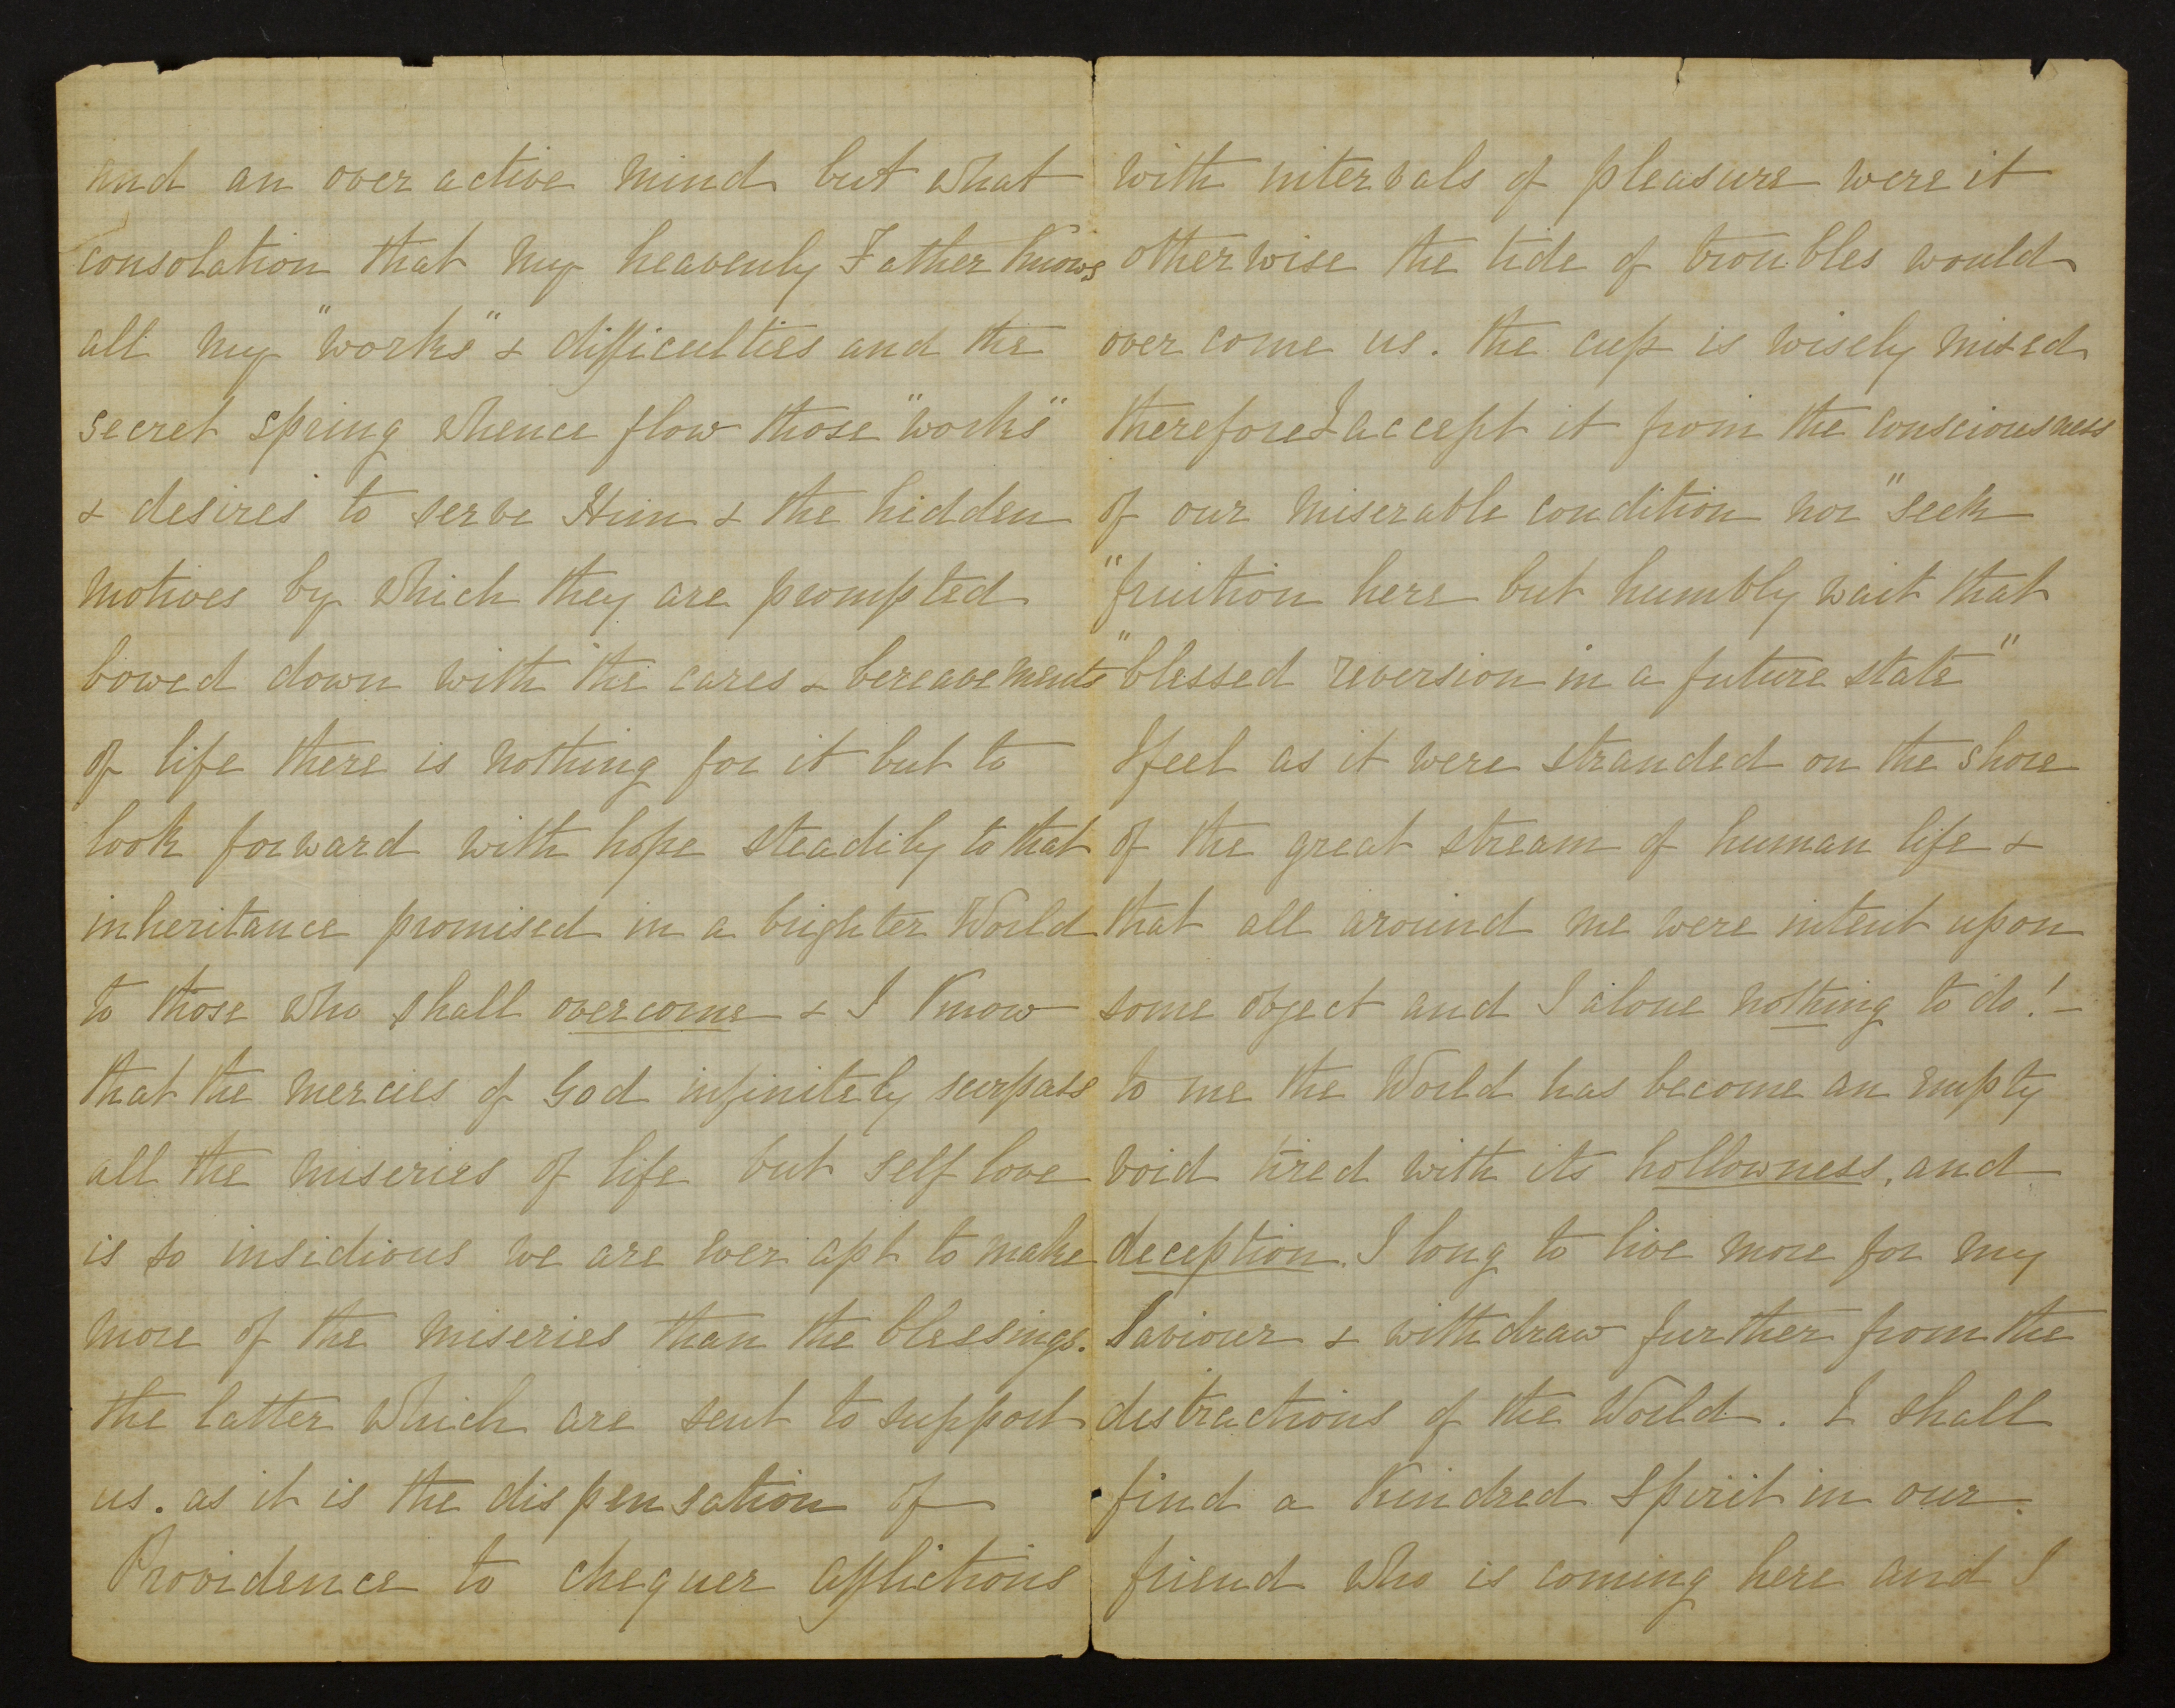 and an over active mind but what
consolation that my heavenly Father Knows
all my "works" & difficulties and the
secret spring whence flow those "works"
& desires to serve Him & the hidden
motives by which they are prompted
bowed down with the cares & bereavements
of life there is nothing for it but to
look forward with hope steadily to that
inheritance promised in a brighter World
to those who shall overcome & I Know
that the mercies of God infinitely surpass
all the miseries of life but self love
is so insidious we are ever apt to make
more of the miseries than the blessings.
the latter which are sent to support
us. as it is the dispensation of
Providence to chequer afflictions
with intervals of pleasure were it
otherwise the tide of troubles would
over come us. the cup is wisely mixed
therefore I accept it from the consciousness
of our miserable condition nor "seek
"fruition here but humbly wait that
"blessed reversion in a future state"
I feel as it were stranded on the shore
of the great stream of human life &
that all around me were intent upon
some object and I alone nothing to do! -
to me the World has become an empty
void tired with its hollowness, and
deception. I long to live more for my
Saviour & withdraw further from the
distractions of the World. I shall
find a Kindred Spirit in our
friend who is coming here and I